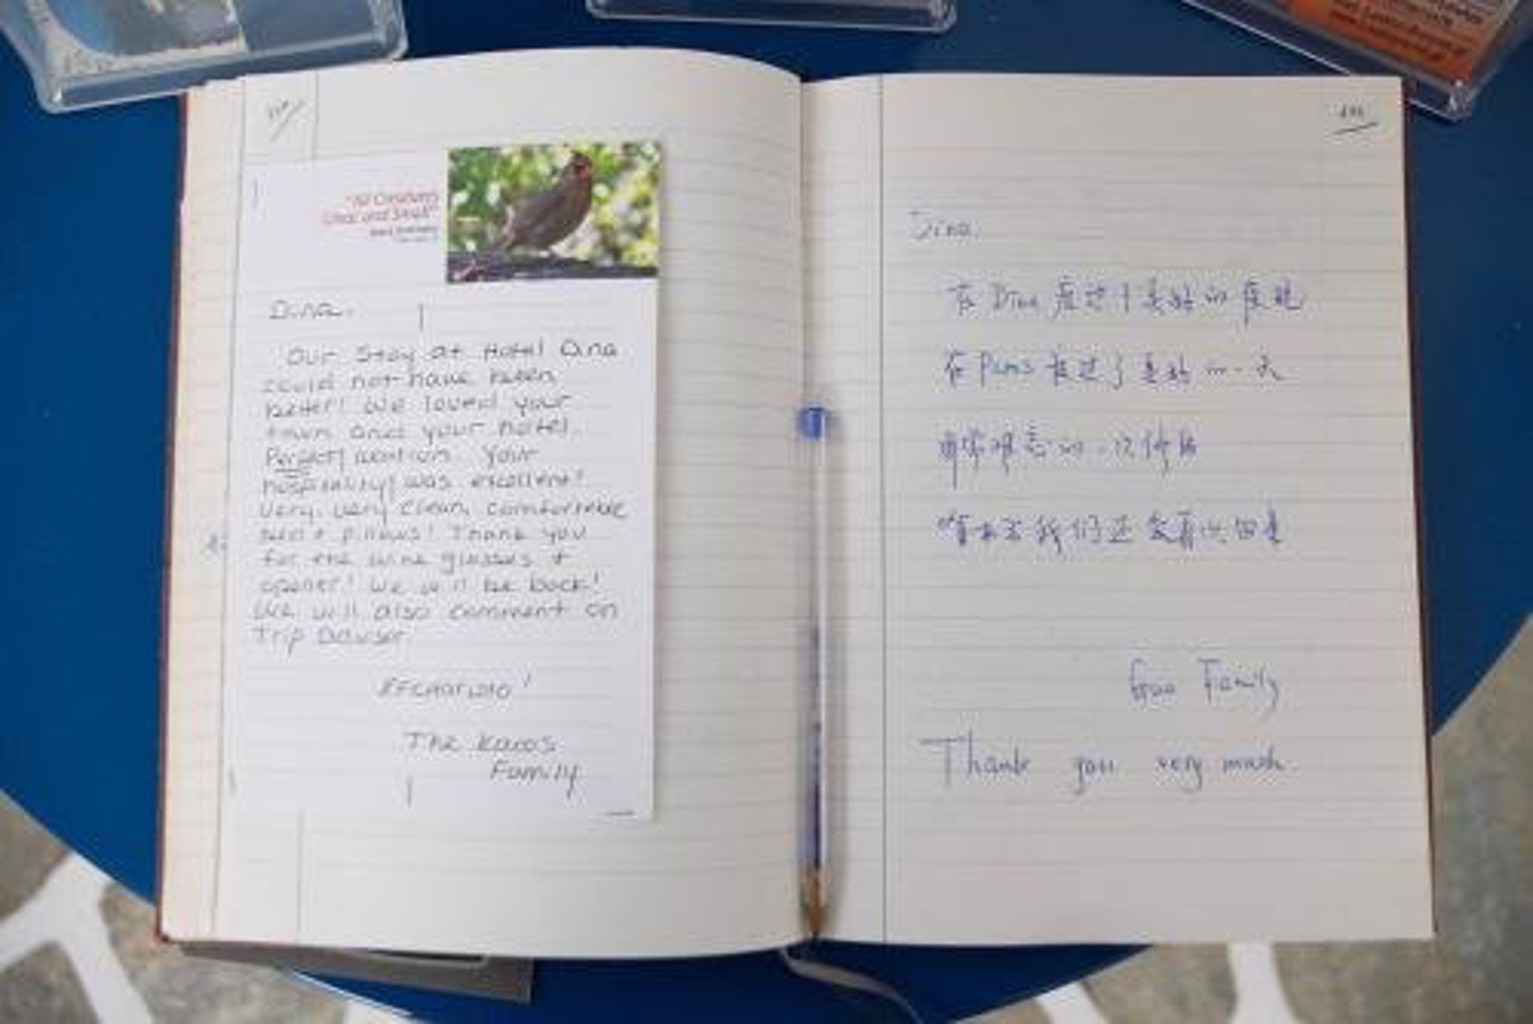 "All Creatures
Great and Small"
Dina,
Our Stay at Hotel Dina
could not have been
better! We loved your
town and your hotel.
Perfect location. Your
hospitality was excellent!
Very, very clean, comfortable
beds + pillows! Thank you
for the wine glasses +
opener! We will be back!
We will also comment on
Trip Advisor
Efcharisto!
The
Family
Dina.
在 Dina 度过了美好的夜晚
在 Paros 度过了美好的一天
非常难忘的一次体验
有机会我们还会再次回来
Guo Family
Thank you very much.